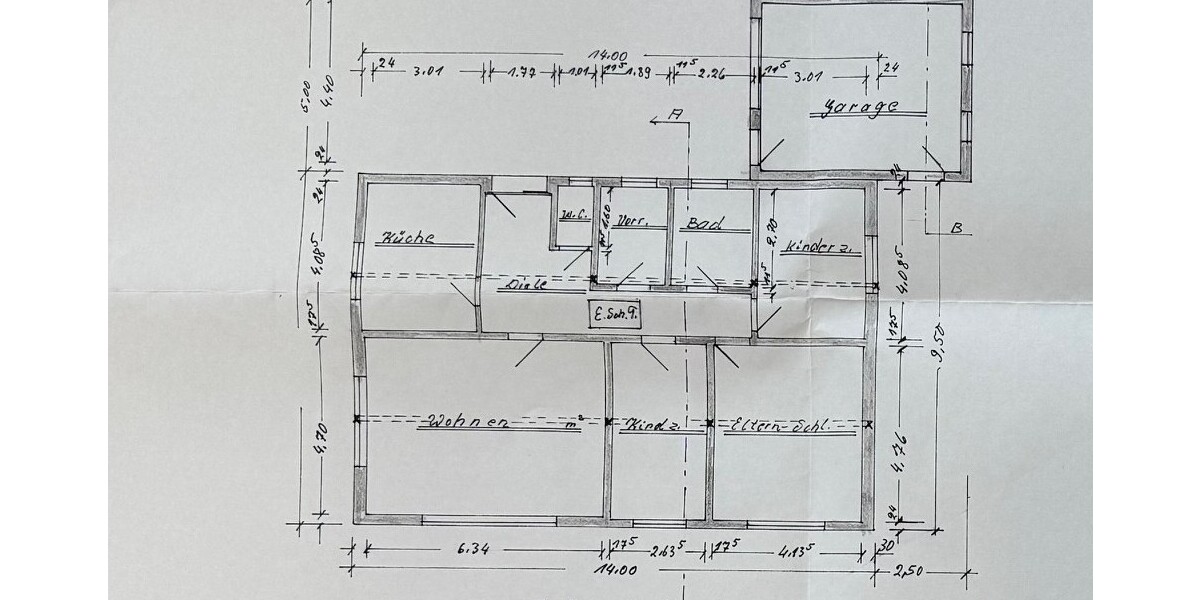 14.00
24 3.01 1.77 1.01 11⁵ 1.89 11⁵ 2.26 11⁵ 3.01 24
5.00
4.40
24
Garage
A
24
4.08⁵
17⁵
Küche
W.C.
1.60
Vorr.
Bad
2.70
11⁵
Kinderz.
24
4.08⁵
17⁵
B
Diele
E.Sch.G.
9,50
4.70
Wohnen m²
Kindz.
Eltern-Schl.
4.76
24
6.34 17⁵ 2.63⁵ 17⁵ 4.13⁵ 30
14.00 2,50